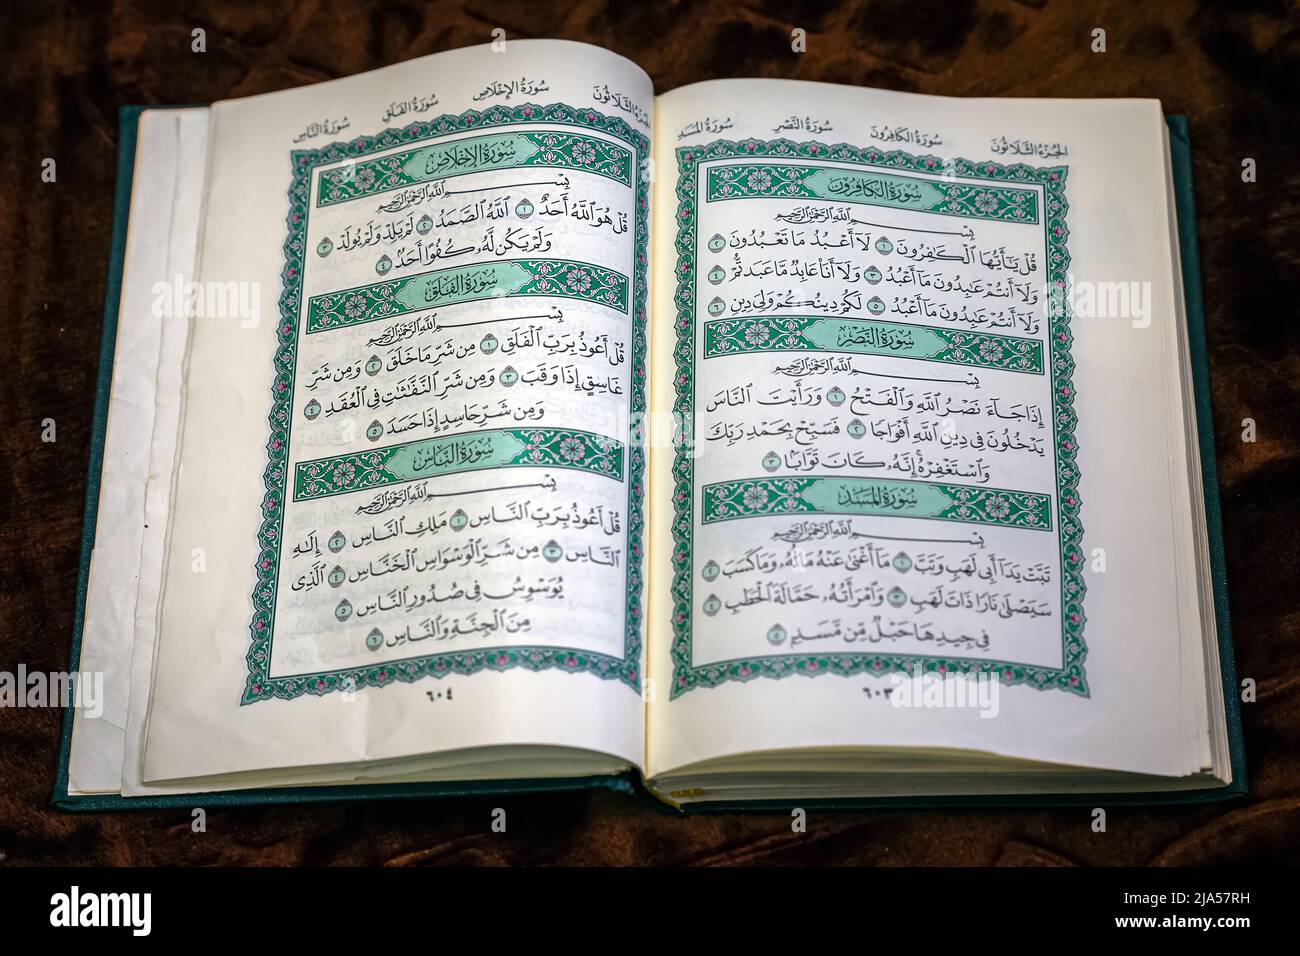 الجزء الثلاثون سورة الكافرون سورة النصر سورة المسد
سورة الكافرون
بسم الله الرحمن الرحيم
قُلْ يَٰٓأَيُّهَا ٱلْكَٰفِرُونَ ١ لَآ أَعْبُدُ مَا تَعْبُدُونَ ٢
وَلَآ أَنتُمْ عَٰبِدُونَ مَآ أَعْبُدُ ٣ وَلَآ أَنَا۠ عَابِدٌ مَّا عَبَدتُّمْ ٤
وَلَآ أَنتُمْ عَٰبِدُونَ مَآ أَعْبُدُ ٥ لَكُمْ دِينُكُمْ وَلِىَ دِينِ ٦
سورة النصر
بسم الله الرحمن الرحيم
إِذَا جَآءَ نَصْرُ ٱللَّهِ وَٱلْفَتْحُ ١ وَرَأَيْتَ ٱلنَّاسَ
يَدْخُلُونَ فِى دِينِ ٱللَّهِ أَفْوَاجًا ٢ فَسَبِّحْ بِحَمْدِ رَبِّكَ
وَٱسْتَغْفِرْهُ ۚ إِنَّهُۥ كَانَ تَوَّابًۢا ٣
سورة المسد
بسم الله الرحمن الرحيم
تَبَّتْ يَدَآ أَبِى لَهَبٍ وَتَبَّ ١ مَآ أَغْنَىٰ عَنْهُ مَالُهُۥ وَمَا كَسَبَ ٢
سَيَصْلَىٰ نَارًا ذَاتَ لَهَبٍ ٣ وَٱمْرَأَتُهُۥ حَمَّالَةَ ٱلْحَطَبِ ٤
فِى جِيدِهَا حَبْلٌ مِّن مَّسَدٍۭ ٥
٦٠٣
الجزء الثلاثون سورة الإخلاص سورة الفلق سورة الناس
سورة الإخلاص
بسم الله الرحمن الرحيم
قُلْ هُوَ ٱللَّهُ أَحَدٌ ١ ٱللَّهُ ٱلصَّمَدُ ٢ لَمْ يَلِدْ وَلَمْ يُولَدْ ٣
وَلَمْ يَكُن لَّهُۥ كُفُوًا أَحَدٌۢ ٤
سورة الفلق
بسم الله الرحمن الرحيم
قُلْ أَعُوذُ بِرَبِّ ٱلْفَلَقِ ١ مِن شَرِّ مَا خَلَقَ ٢ وَمِن شَرِّ
غَاسِقٍ إِذَا وَقَبَ ٣ وَمِن شَرِّ ٱلنَّفَّٰثَٰتِ فِى ٱلْعُقَدِ ٤
وَمِن شَرِّ حَاسِدٍ إِذَا حَسَدَ ٥
سورة الناس
بسم الله الرحمن الرحيم
قُلْ أَعُوذُ بِرَبِّ ٱلنَّاسِ ١ مَلِكِ ٱلنَّاسِ ٢ إِلَٰهِ
ٱلنَّاسِ ٣ مِن شَرِّ ٱلْوَسْوَاسِ ٱلْخَنَّاسِ ٤ ٱلَّذِى
يُوَسْوِسُ فِى صُدُورِ ٱلنَّاسِ ٥
مِنَ ٱلْجِنَّةِ وَٱلنَّاسِ ٦
٦٠٤
alamy
Image ID: 2JA57RH
www.alamy.com